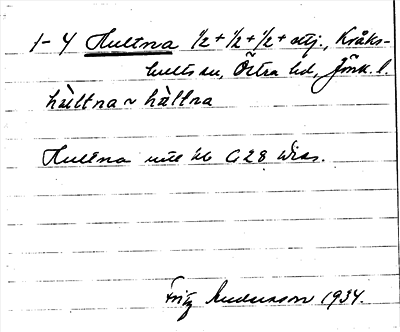 1-4 Hultna 1/2 + 1/2 + 1/2 + otj., Kråks-
hults sn, Östra hd, Jönk. l.
hùltna ~ hùllna
Hultna 128 Wias.
Fritz Andersson 1934.